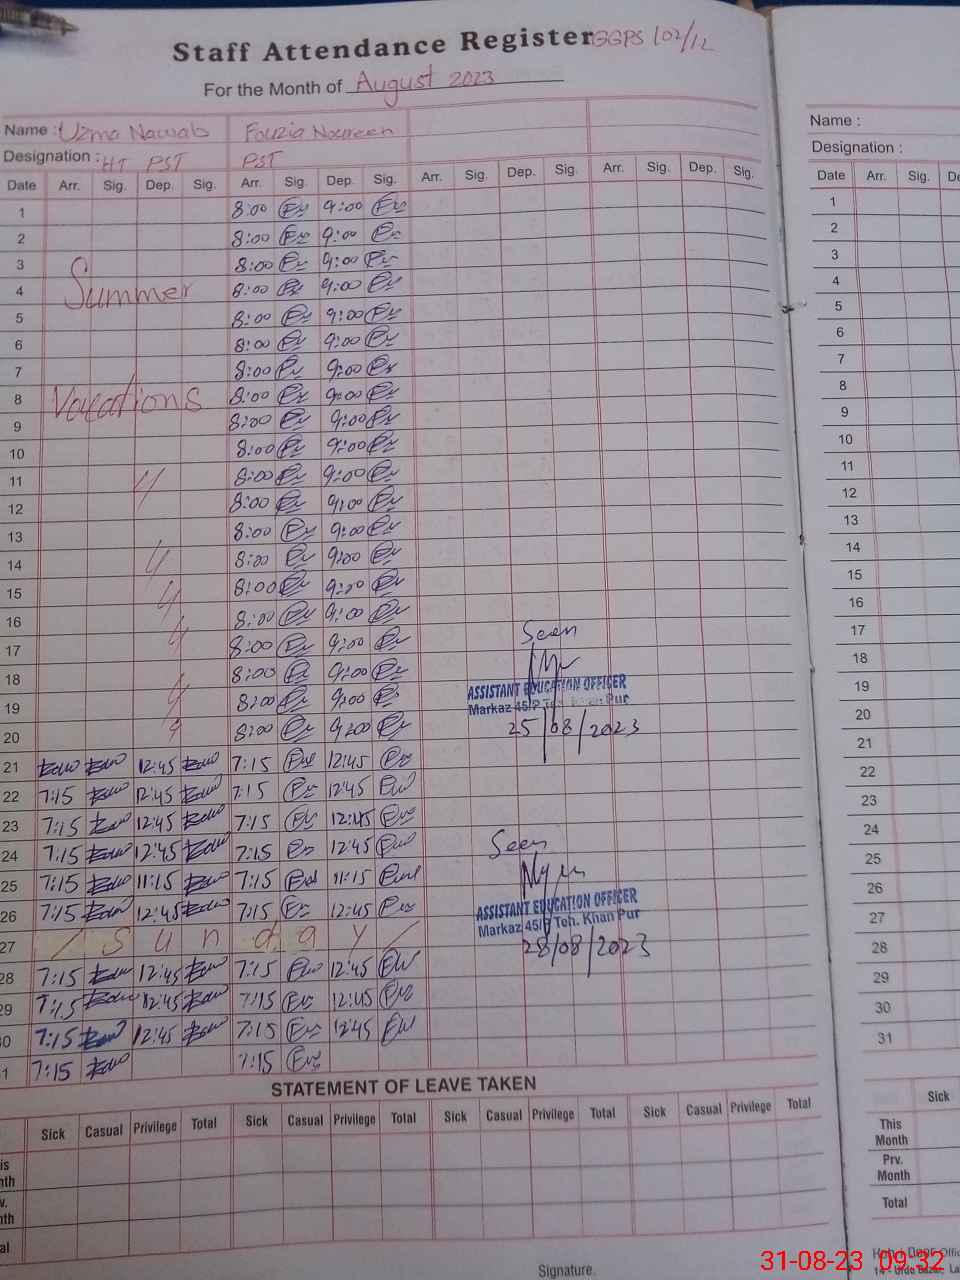 Staff Attendance Register GGPS 102/12
For the Month of August 2023
Name : Uzma Nawab Fouzia Noureen
Designation : HT PST PST
Date Arr. Sig. Dep. Sig. Arr. Sig. Dep. Sig. Arr. Sig. Dep. Sig. Arr. Sig. Dep. Sig.
1 8:00 9:00
2 8:00 9:00
3 8:00 9:00
4 Summer 8:00 9:00
5 8:00 9:00
6 8:00 9:00
7 8:00 9:00
8 Vacations 8:00 9:00
9 8:00 9:00
10 8:00 9:00
11 8:00 9:00
12 8:00 9:00
13 8:00 9:00
14 8:00 9:00
15 8:00 9:00
16 8:00 9:00
17 8:00 9:00
18 8:00 9:00
19 8:00 9:00
20 8:00 9:00
Seen
ASSISTANT EDUCATION OFFICER
Markaz 45/P Teh. Khan Pur
25/08/2023
21 12:45 7:15 12:45
22 7:15 12:45 7:15 12:45
23 7:15 12:45 7:15 12:45
24 7:15 12:45 7:15 12:45
25 7:15 11:15 7:15 11:15
26 7:15 12:45 7:15 12:45
27 / S u n d a y /
28 7:15 12:45 7:15 12:45
29 7:15 12:45 7:15 12:45
30 7:15 12:45 7:15 12:45
31 7:15 7:15
Seen
ASSISTANT EDUCATION OFFICER
Markaz 45/P Teh. Khan Pur
28/08/2023
STATEMENT OF LEAVE TAKEN
Sick Casual Privilege Total Sick Casual Privilege Total Sick Casual Privilege Total Sick Casual Privilege Total
Signature.
Name :
Designation :
Date Arr. Sig.
1
2
3
4
5
6
7
8
9
10
11
12
13
14
15
16
17
18
19
20
21
22
23
24
25
26
27
28
29
30
31
Sick
This
Month
Prv.
Month
Total
31-08-23 09:32